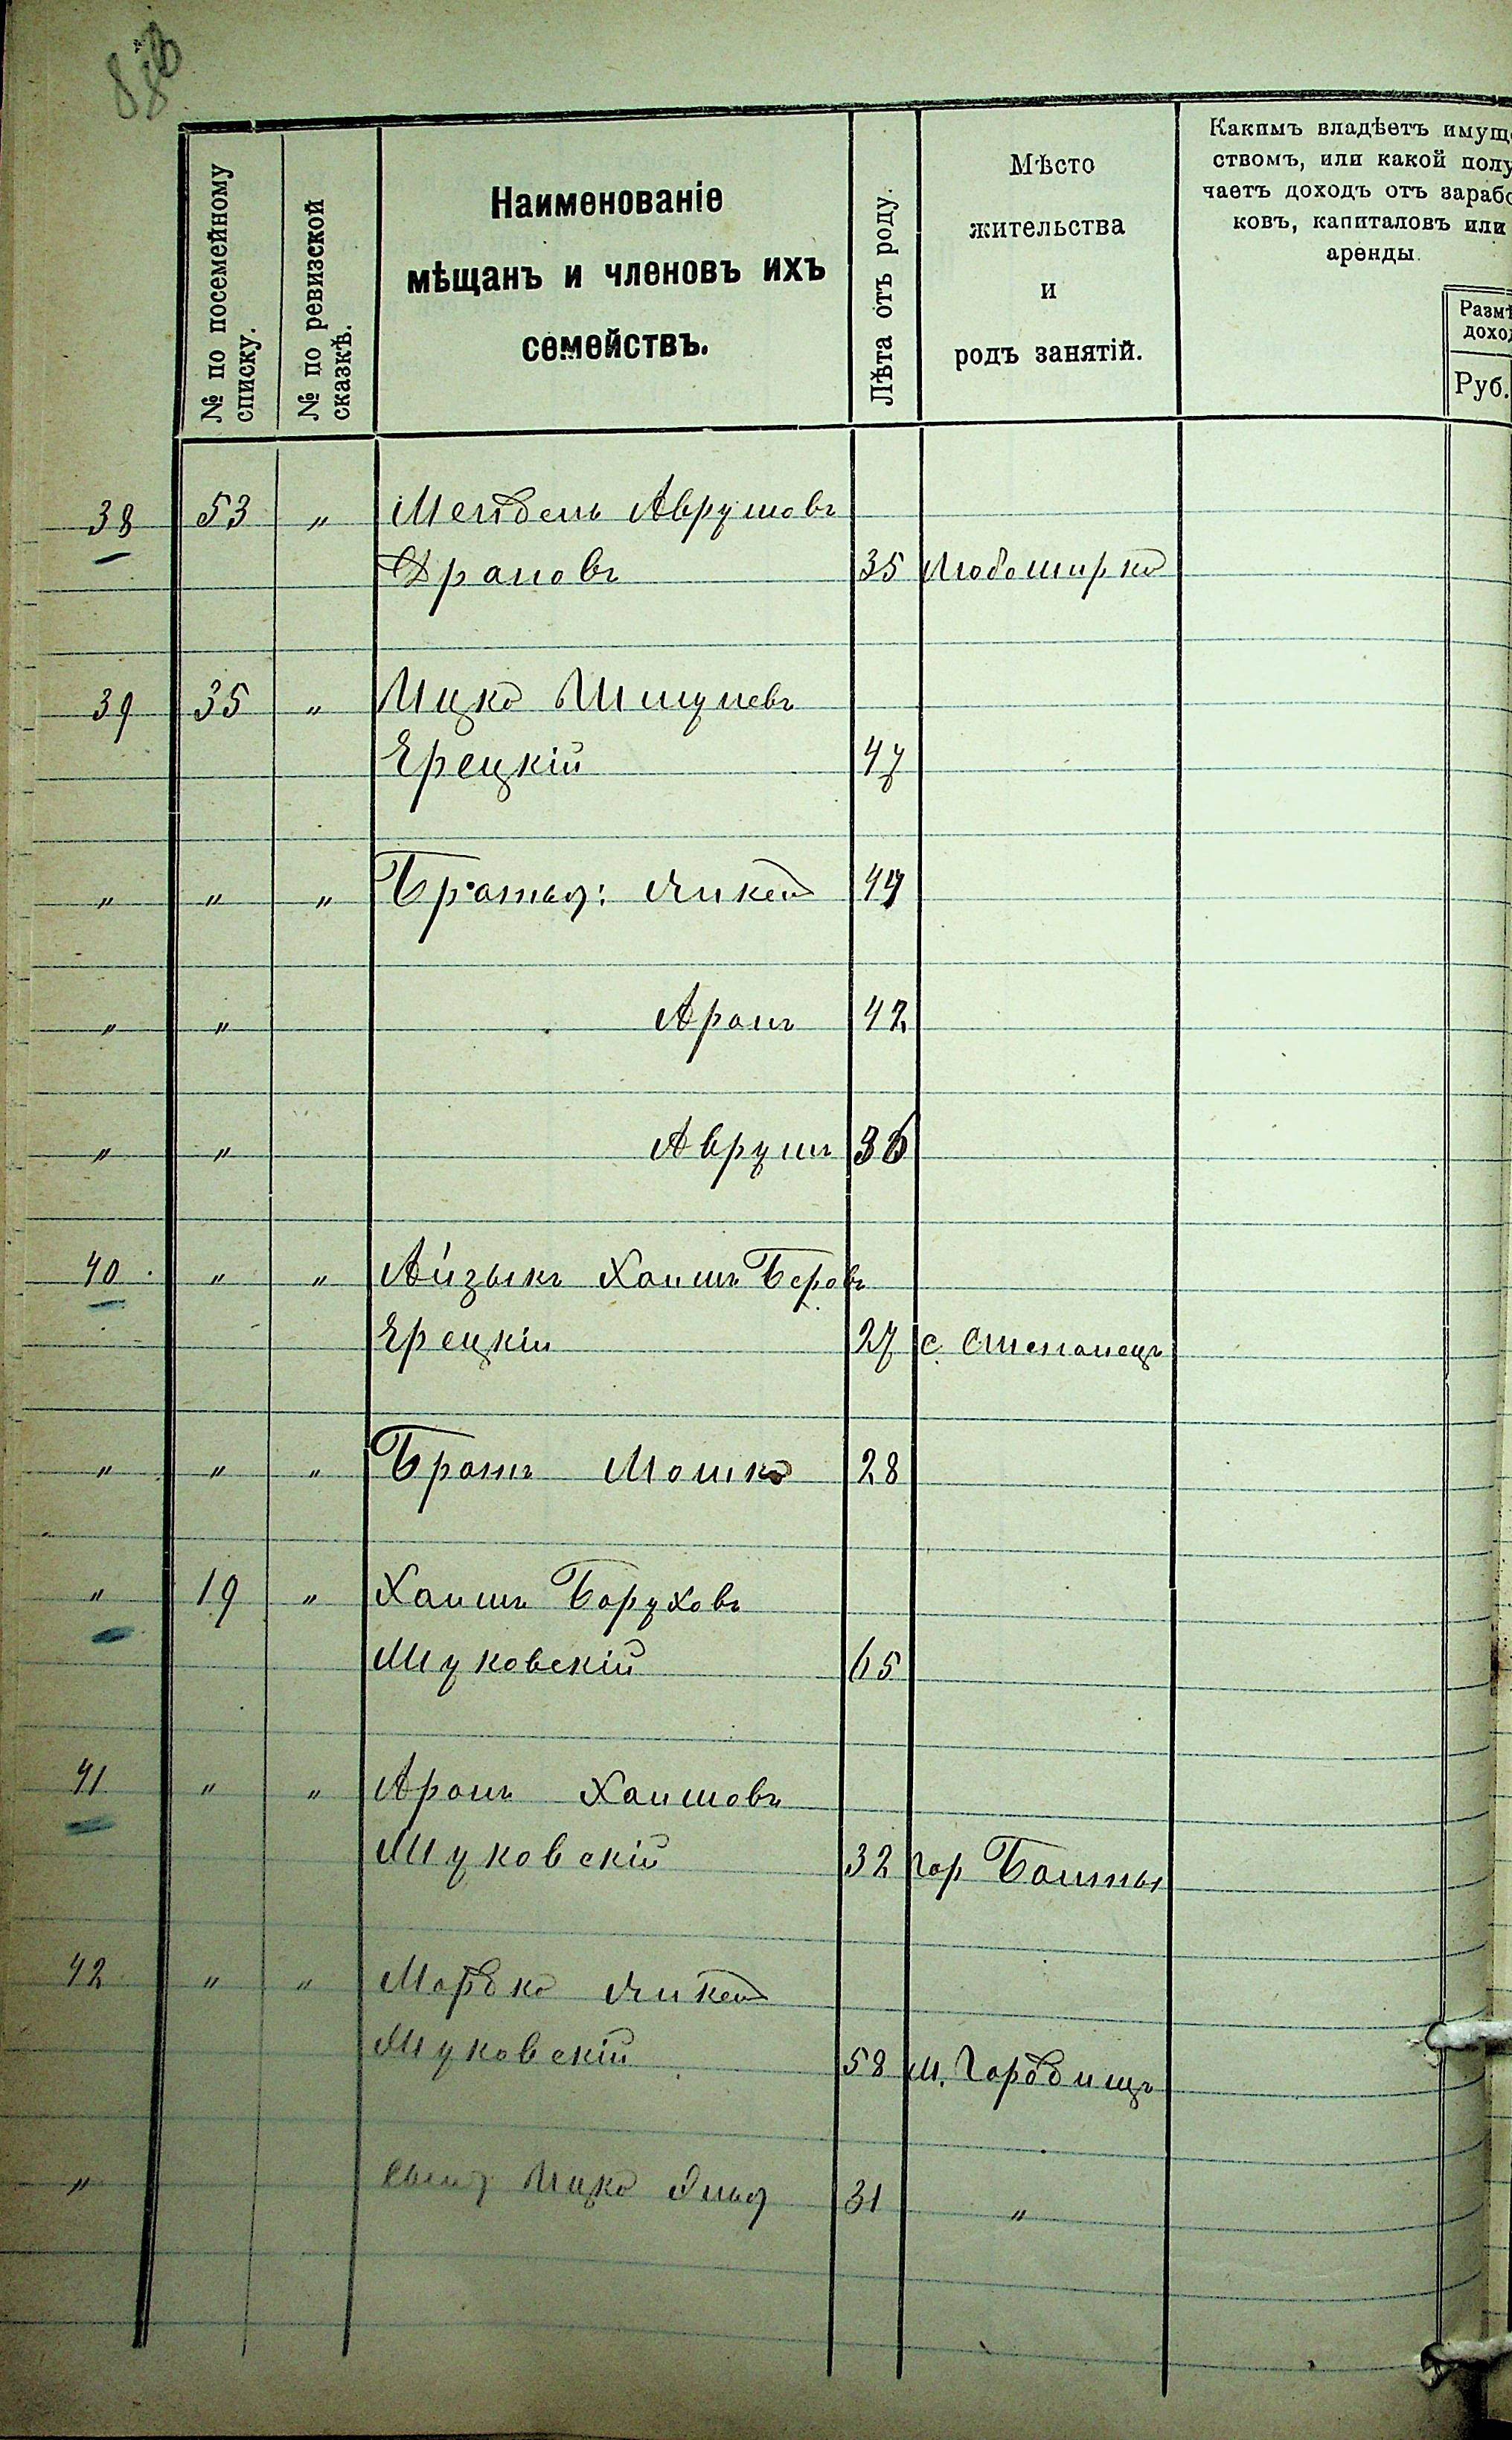 № по посемейному списку.
№ по ревизской сказкѣ.
Наименованіе
мѣщанъ и членовъ ихъ
семействъ.
Лѣта отъ роду.
Мѣсто
жительства
и
родъ занятій.
Какимъ владѣетъ имуще
ствомъ, или какой полу
чаетъ доходъ отъ зарабо
ковъ, капиталовъ или
аренды.
Размѣ
доход
Руб.
38 53 „ Мендель Аврумовъ
Драновъ 35 Любомирка
39 35 „ Ицко Шмулевъ
Ерецкій 47
„ „ „ Братья: Янкель 44
„ „ Аронъ 42
„ „ Аврумъ 36
40 „ „ Айзыкъ Хаимъ Беровъ
Ерецкій 27 с. Степанецъ
„ „ „ Братъ Мошко 28
„ 19 „ Хаимъ Боруховъ
Жуковскій 65
41 „ „ Аронъ Хаимовъ
Жуковскій 32 гор Балты
42 „ „ Мордко Янкел
Жуковскій 58 м. Городищъ
„ Сынъ Ицко Элья 31 „